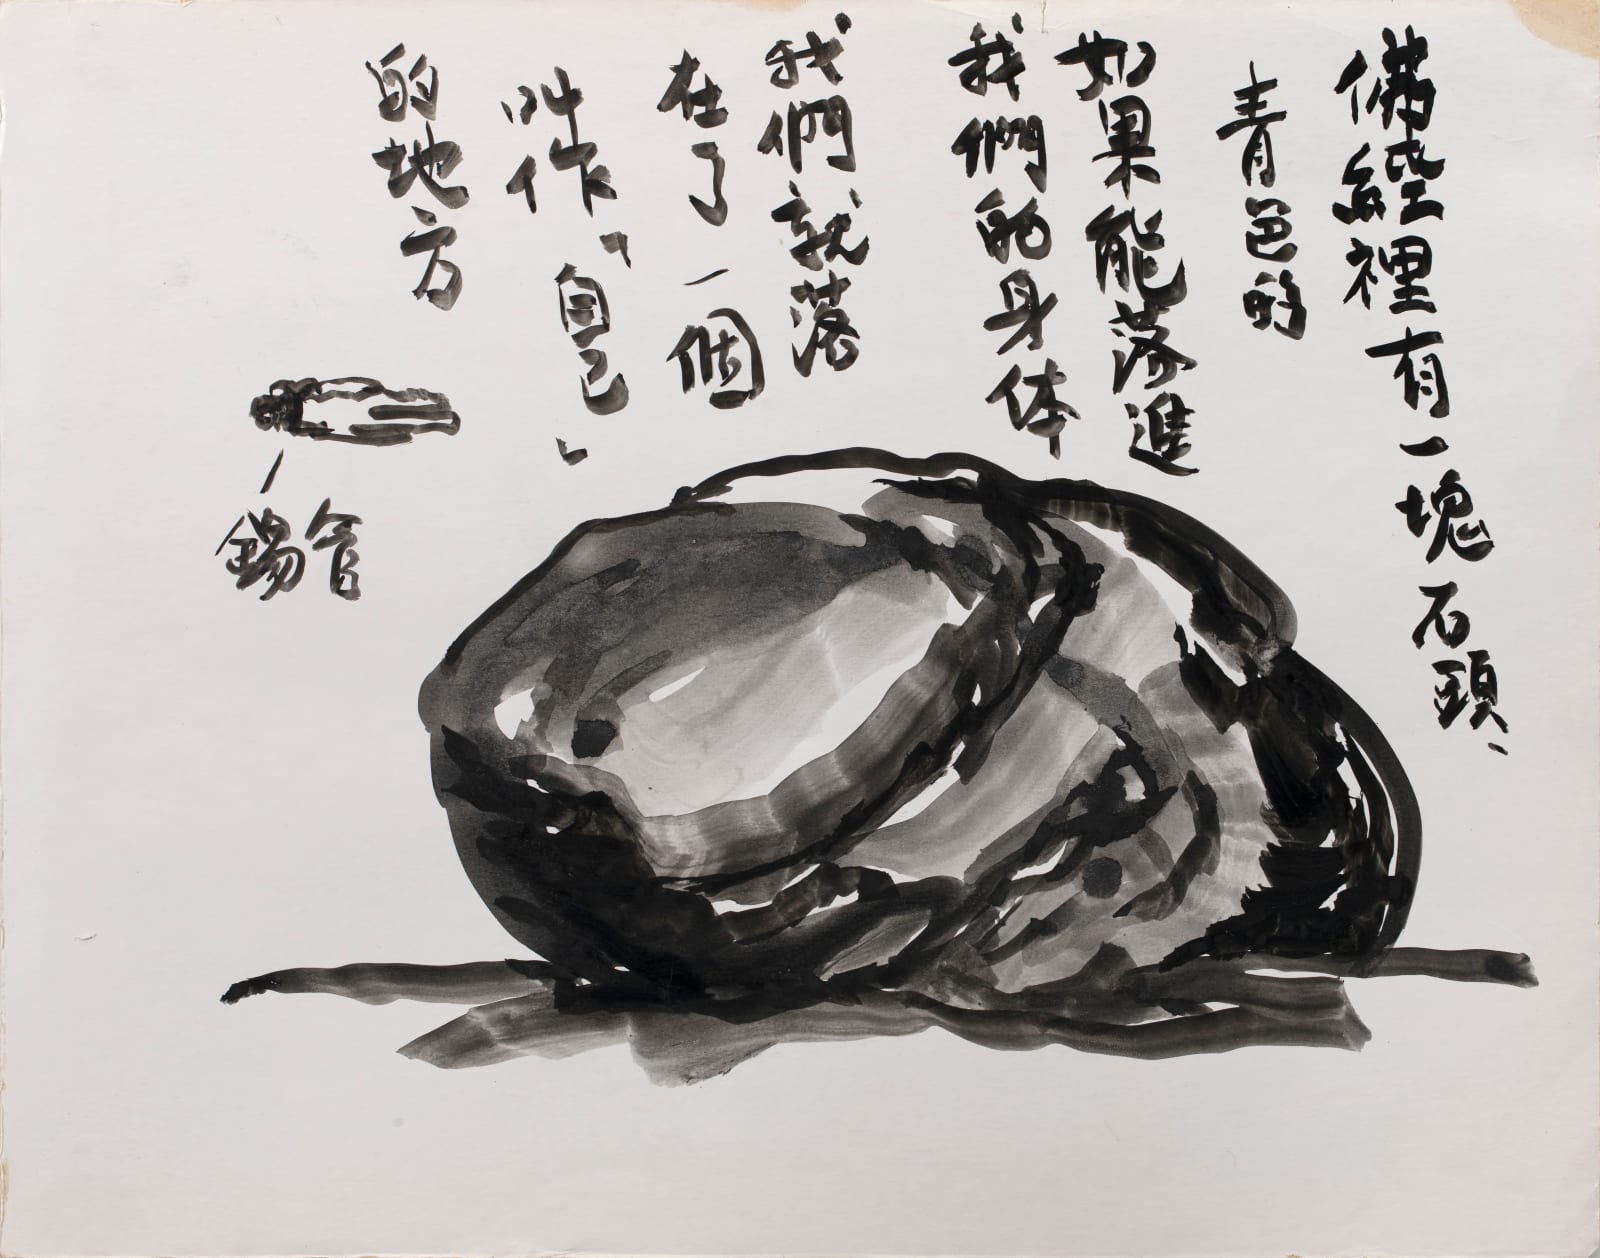 佛經裡有一塊石頭、
青色的
如果能落進
我們的身体
我們就落
在了一個
叫作「自己」
的地方
管
錫